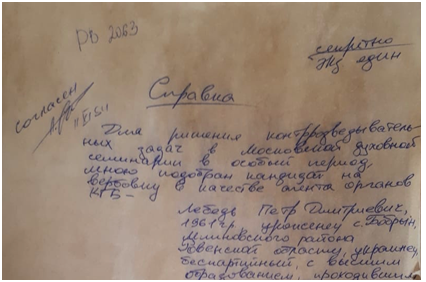 РВ 2063
секретно
Экз един
согласен
Справка
Для решения контрразведыватель-
ных задач в Московской духовной
семинарии в особый период,
мною подобран кандидат на
вербовку в качестве агента органов
КГБ –
Лебедь Петр Дмитриевич,
1961 гр уроженец с.
Млиновского района
Ровенской области, украинец,
беспартийный, с высшим
образованием, проходивший